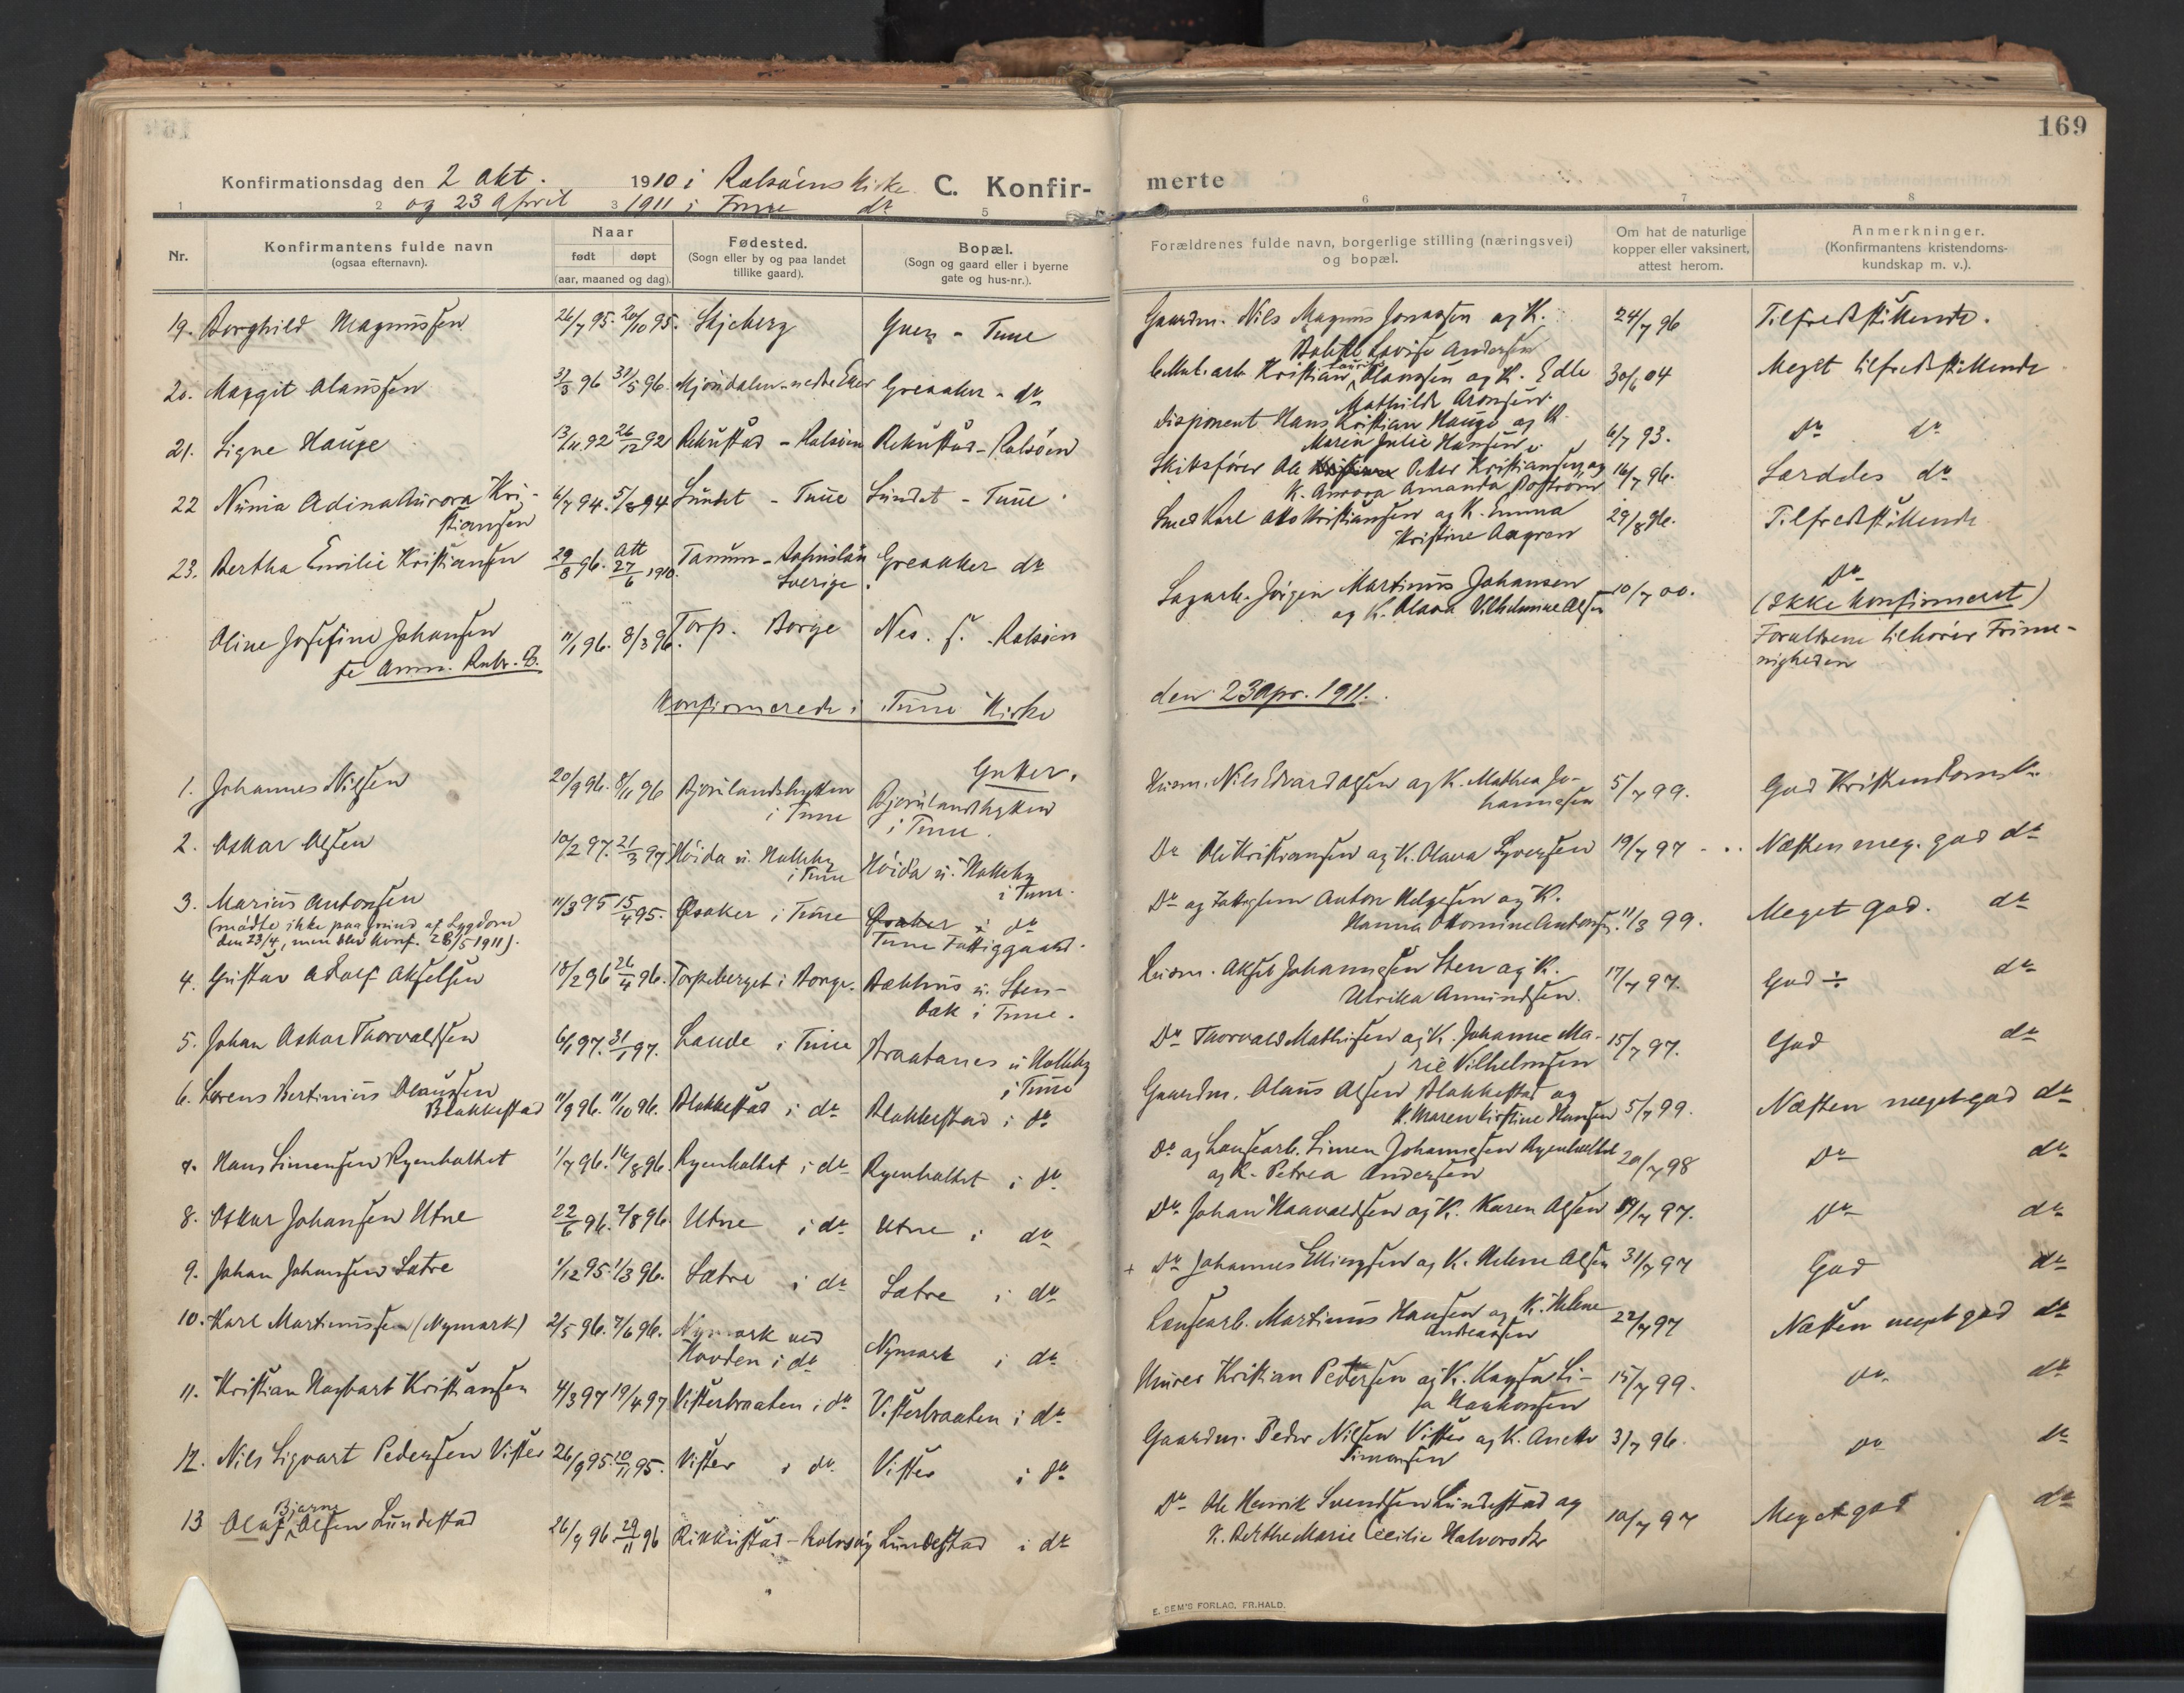 169
Konfirmationsdag den 2 Okt. 1910 i Rolsöens Kirke C. Konfir-
og 23 April 1911 i Tune do
merte
1 2 3 5 6 7 8
Nr.
Konfirmantens fulde navn
(ogsaa efternavn).
Naar
født døpt
(aar, maaned og dag).
Fødested.
(Sogn eller by og paa landet
tillike gaard).
Bopæl.
(Sogn og gaard eller i byerne
gate og hus-nr.).
Forældrenes fulde navn, borgerlige stilling (næringsvei)
og bopæl.
Om hat de naturlige
kopper eller vaksinert,
attest herom.
Anmerkninger.
(Konfirmantens kristendoms-
kundskap m. v.).
19. Borghild Magnussen 26/7 95. 20/10 95. Skjeberg - Tune Gaardm. Nils Magnus Jonassen og K. 24/7 96 Tilfredsstillende.
Lovise Andersen
20. Margit Olaussen 3/3 96 31/5 96. Mjöndalen - nedre Eker Greaaker - do Kristian Laurits Olaussen og K. Edle 30/6 04 Meget tilfredsstillende
Mathilde Aronsen.
21. Signe Hauge 13/11 92 26/12 92 Rekustad - Rolsöen Rekustad - Rolsöen Disponent Hans Kristian Hauge og K. 6/7 93. do do
Maren Julie Hansen
22 Nunia Adina Aurora Kri- 6/7 94. 5/8 94 Sundet - Tune Sundet - Tune Skibsförer Ole Peter Kristiansen og 16/7 96. Særdeles do
stiansen K. Aurora Amanda Boström
23. Bertha Emilie Kristiansen 29/8 96. Att 27/6 1910. Tanum - Bohuslän Greaaker do Smed Karl Otto Kristiansen og K. Emma 29/8 96. Tilfredsstillende
Sverige. Kristine Aagren
Oline Josefine Johansen 11/1 96. 8/3 96. Torp. Borge Nes. s. Rolsöen Sagarb. Jörgen Martinus Johansen 10/7 00. Do
se Anm. Rubr. 8. og K. Olava Vilhelmine Olsen (Ikke konfirmeret)
Forældrene tilhörer Frime-
nigheden
Konfirmerede i Tune Kirke den 23 Apr. 1911.
Gutter.
1. Johannes Nilsen 20/9 96. 8/11 96 Bjørnlandshytten Bjørnlandshytten Husm. Nils Edvard Olsen og K. Mathea Jo- 5/7 99. God Kristendomsk.
i Tune i Tune. hannesen
2. Oskar Olsen 10/2 97. 21/3 97. Höida u. Holleby Höida u. Holleby Do Ole Kristiansen og K. Olava Syversen 19/7 97 Næsten meg. god do
i Tune i Tune.
3. Marius Antonsen 11/3 95 15/4 95. Øsaker i Tune Øsaker i do Do og Anton Helgesen og K. 11/3 99. Meget god. do
(mödte ikke paa Grund af Sygdom Tune Fattiggaard. Hanna Antonsen.
den 23/4, men blev Konf. 28/5 1911).
4. Gustav Adolf Akselsen 18/2 96 26/4 96. Torpeberget i Borge. Bakkhus u. Sten- Husm. Aksel Johannesen Sten og K. 17/7 97. God ÷ do
bæk i Tune. Ulrikka Amundsen.
5. Johan Oskar Thorvaldsen 6/1 97. 31/1 97. Lande i Tune Braatanes u Holleby Do Thorvald Mathisen og K. Johanne Ma- 15/7 97. God do
i Tune rie Vilhelmsen
6. Lorens Bertinius Olaussen 11/9 96. 11/10 96. Blakkestad i do Blakkestad i do Gaardm. Olaus Olsen Blakkestad og 5/7 99. Næsten meget god do
Blakkestad K. Maren Kirstine Hansen
7. Hans Simensen Ryenholtet 1/7 96. 16/8 96. Ryenholtet i do Ryenholtet i do Do og Simen Johannesen Ryenholtet 20/7 98 Do do
og K. Petrea Andersen
8. Oskar Johansen Utne 22/6 96. 2/8 96. Utne i do Utne i do Do Johan Haavaldsen og K. Karen Olsen 19/7 97. Do do
9. Johan Johansen Sætre 1/12 95. 1/3 96. Sætre i do Sætre i do + Do Johannes Ellingsen og K. Helene Olsen 31/7 97 God do
10. Karl Martinussen (Nymark) 2/5 96. 7/6 96. Nymark ved Nymark i do Martinus Hansen og K. Helene 22/7 97 Næsten meget god do
Hovden i do Andreassen
11. Kristian Hagbart Kristiansen 4/3 97 19/4 97 Visterbraaten i do Visterbraaten i do Murer Kristian Pedersen og K. Kaysa Li- 15/7 99. Do do
sa Haakonsen
12. Nils Sigvart Pedersen Vister 26/9 95. 10/11 95. Vister i do. Vister i do Gaardm. Peder Nilsen Vister og K. Anette 3/7 96. Do do
Simonsen
13 Olaf Bjarne Olsen Lundestad 26/9 96. 29/11 96 Rikkustad - Rolvsöy Lundestad i do Do Ole Henrik Svendsen Lundestad og 10/7 97 Meget god do
K. Berthe Marie Cecilie Halvorsdtr
E. SEM'S FORLAG, FR.HALD.